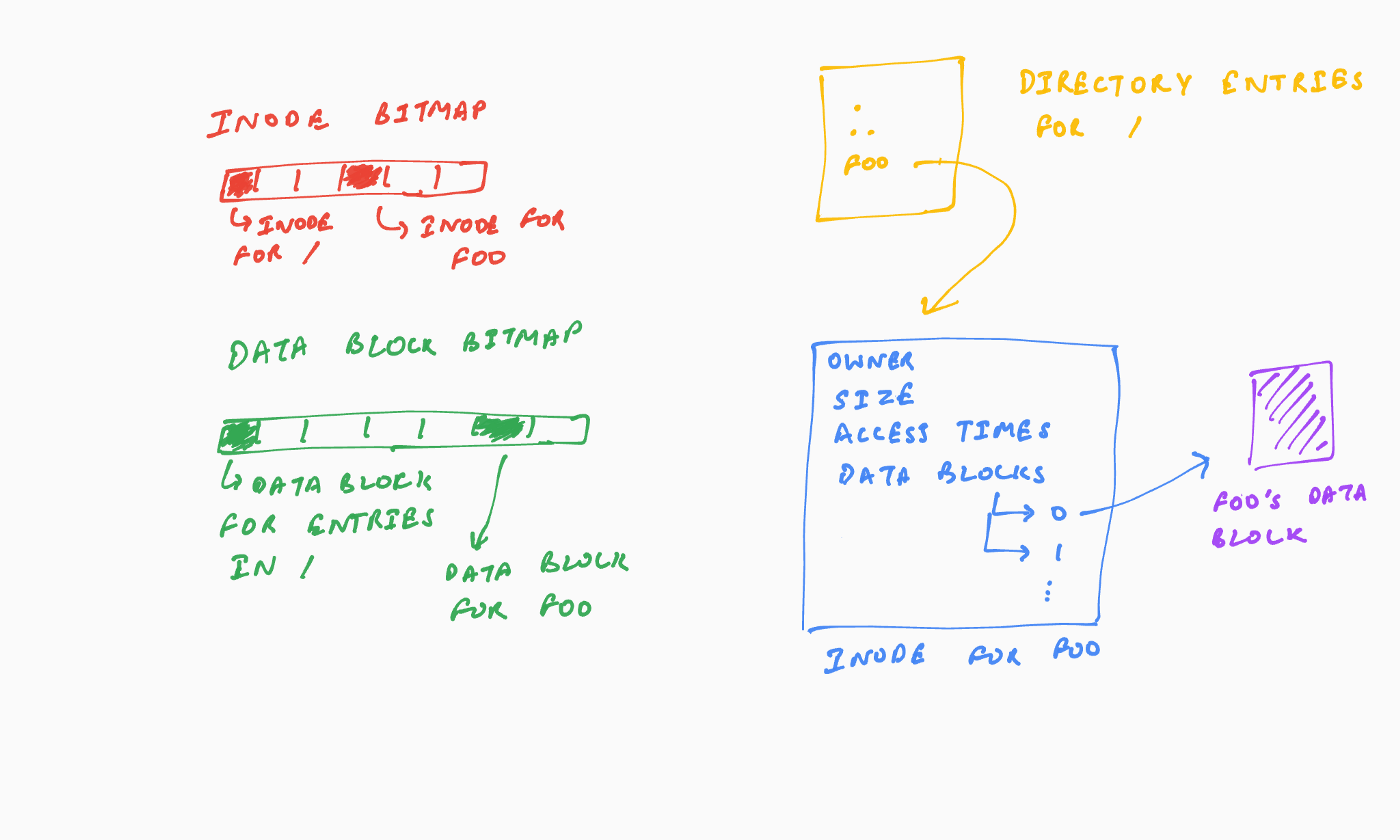 INODE BITMAP
INODE
FOR /
INODE FOR
FOO
DATA BLOCK BITMAP
DATA BLOCK
FOR ENTRIES
IN /
DATA BLOCK
FOR FOO
.
..
FOO
DIRECTORY ENTRIES
FOR /
OWNER
SIZE
ACCESS TIMES
DATA BLOCKS
0
1
⋮
INODE FOR FOO
FOO'S DATA
BLOCK